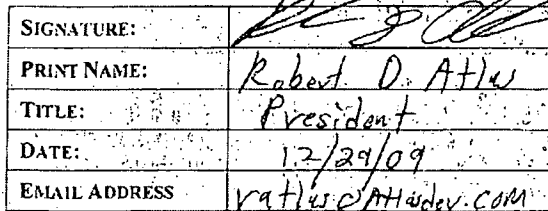 SIGNATURE:
PRINT NAME: Robert D. Atlas
TITLE: President
DATE: 12/29/09
EMAIL ADDRESS ratlas@Atlasdev.com